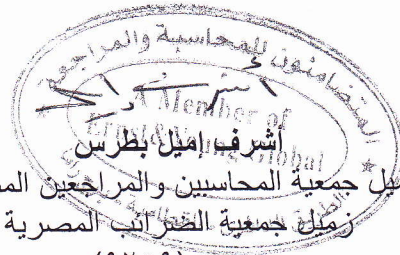 المتضامنون للمحاسبة والمراجعة
A Member of
Ernst & Young Global
أشرف إميل بطرس
جمعية المحاسبين والمراجعين
زميل جمعية الضرائب المصرية